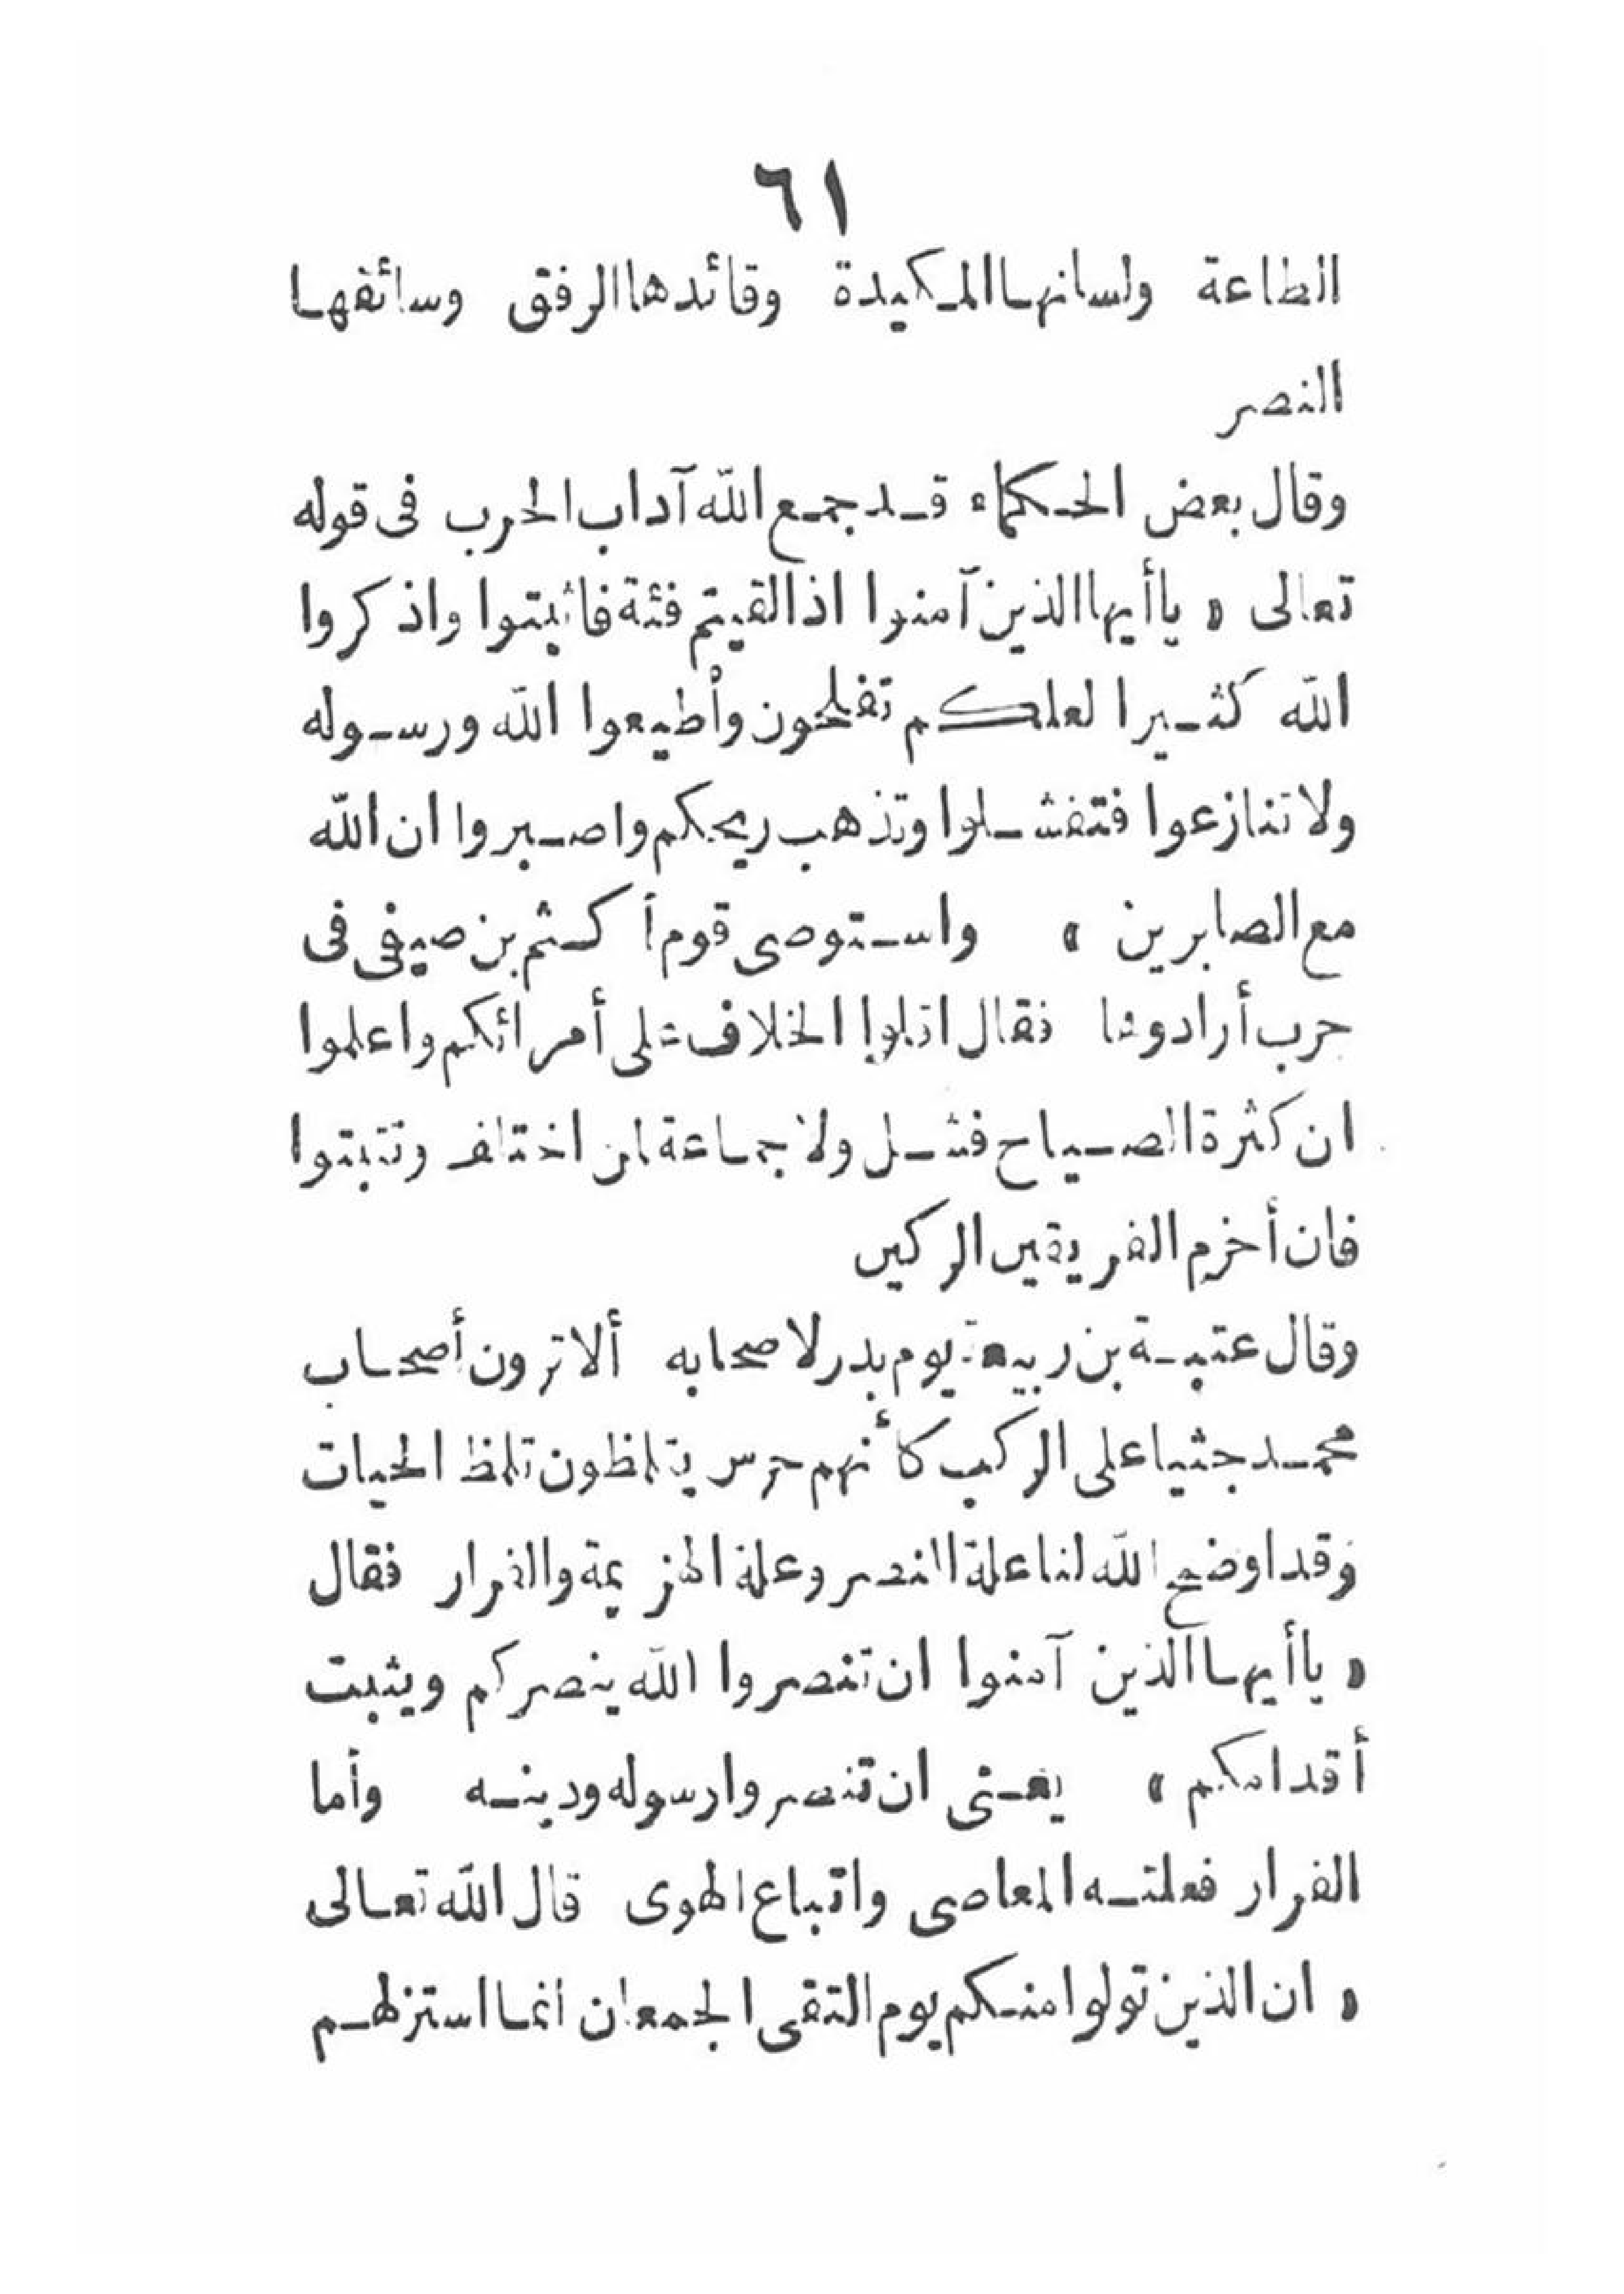 ٦١
الطاعة ولسانها المكيدة وقائدها الرفق وسائقها
النصر
وقال بعض الحكماء قد جمع الله آداب الحرب فى قوله
تعالى « ياأيها الذين آمنوا اذا لقيتم فئة فاثبتوا واذكروا
الله كثيرا لعلكم تفلحون وأطيعوا الله ورسوله
ولا تنازعوا فتفشلوا وتذهب ريحكم واصبروا ان الله
مع الصابرين » واستوصى قوم أكثم بن صيفى فى
حرب أرادوها فقال اقلوا الخلاف على أمرائكم واعلموا
ان كثرة الصياح فشل ولا جماعة لمن اختلف وتثبتوا
فان أحزم الفريقين الركين
وقال عتبة بن ربيعة يوم بدر لاصحابه ألا ترون أصحاب
محمد جثيا على الركب كأنهم خرس يتلمظون تلمظ الحيات
وقد اوضح الله لنا علة النصر وعلة الهزيمة والفرار فقال
« ياأيها الذين آمنوا ان تنصروا الله ينصركم ويثبت
أقدامكم » يعنى ان تنصروا رسوله ودينه وأما
الفرار فعلته المعاصى واتباع الهوى قال الله تعالى
« ان الذين تولوا منكم يوم التقى الجمعان انما استزلهم